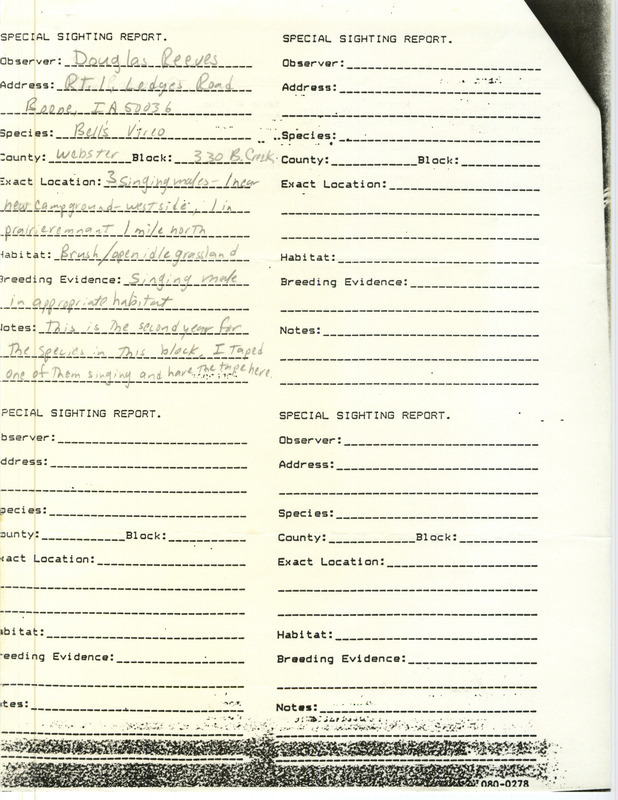 SPECIAL SIGHTING REPORT.
Observer: Douglas Reeves
Address: RT. 1, Ledges Road
Boone, IA 50036
Species: Bell's Vireo
County: Webster Block: 330 B. Creek.
Exact Location: 3 singing males - 1 near
near campground - west side, 1 in
prairie remnant 1 mile north
Habitat: Brush/open idle grassland
Breeding Evidence: Singing male
in appropriate habitat
Notes: This is the second year for
the species in this block. I Taped
one of them singing and have the tape here.
SPECIAL SIGHTING REPORT.
Observer:
Address:
Species:
County: Block:
Exact Location:
Habitat:
Breeding Evidence:
Notes:
PECIAL SIGHTING REPORT.
bserver:
ddress:
pecies:
ounty: Block:
xact Location:
abitat:
reeding Evidence:
tes:
SPECIAL SIGHTING REPORT.
Observer:
Address:
Species:
County: Block:
Exact Location:
Habitat:
Breeding Evidence:
Notes:
080-0278